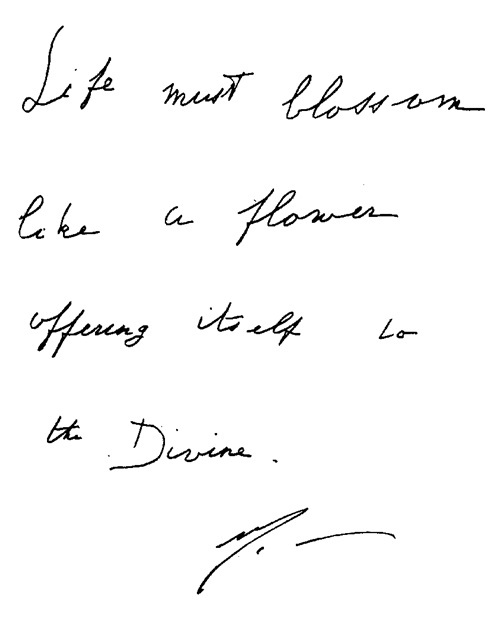 Life must blossom
like a flower
offering itself to
the Divine.